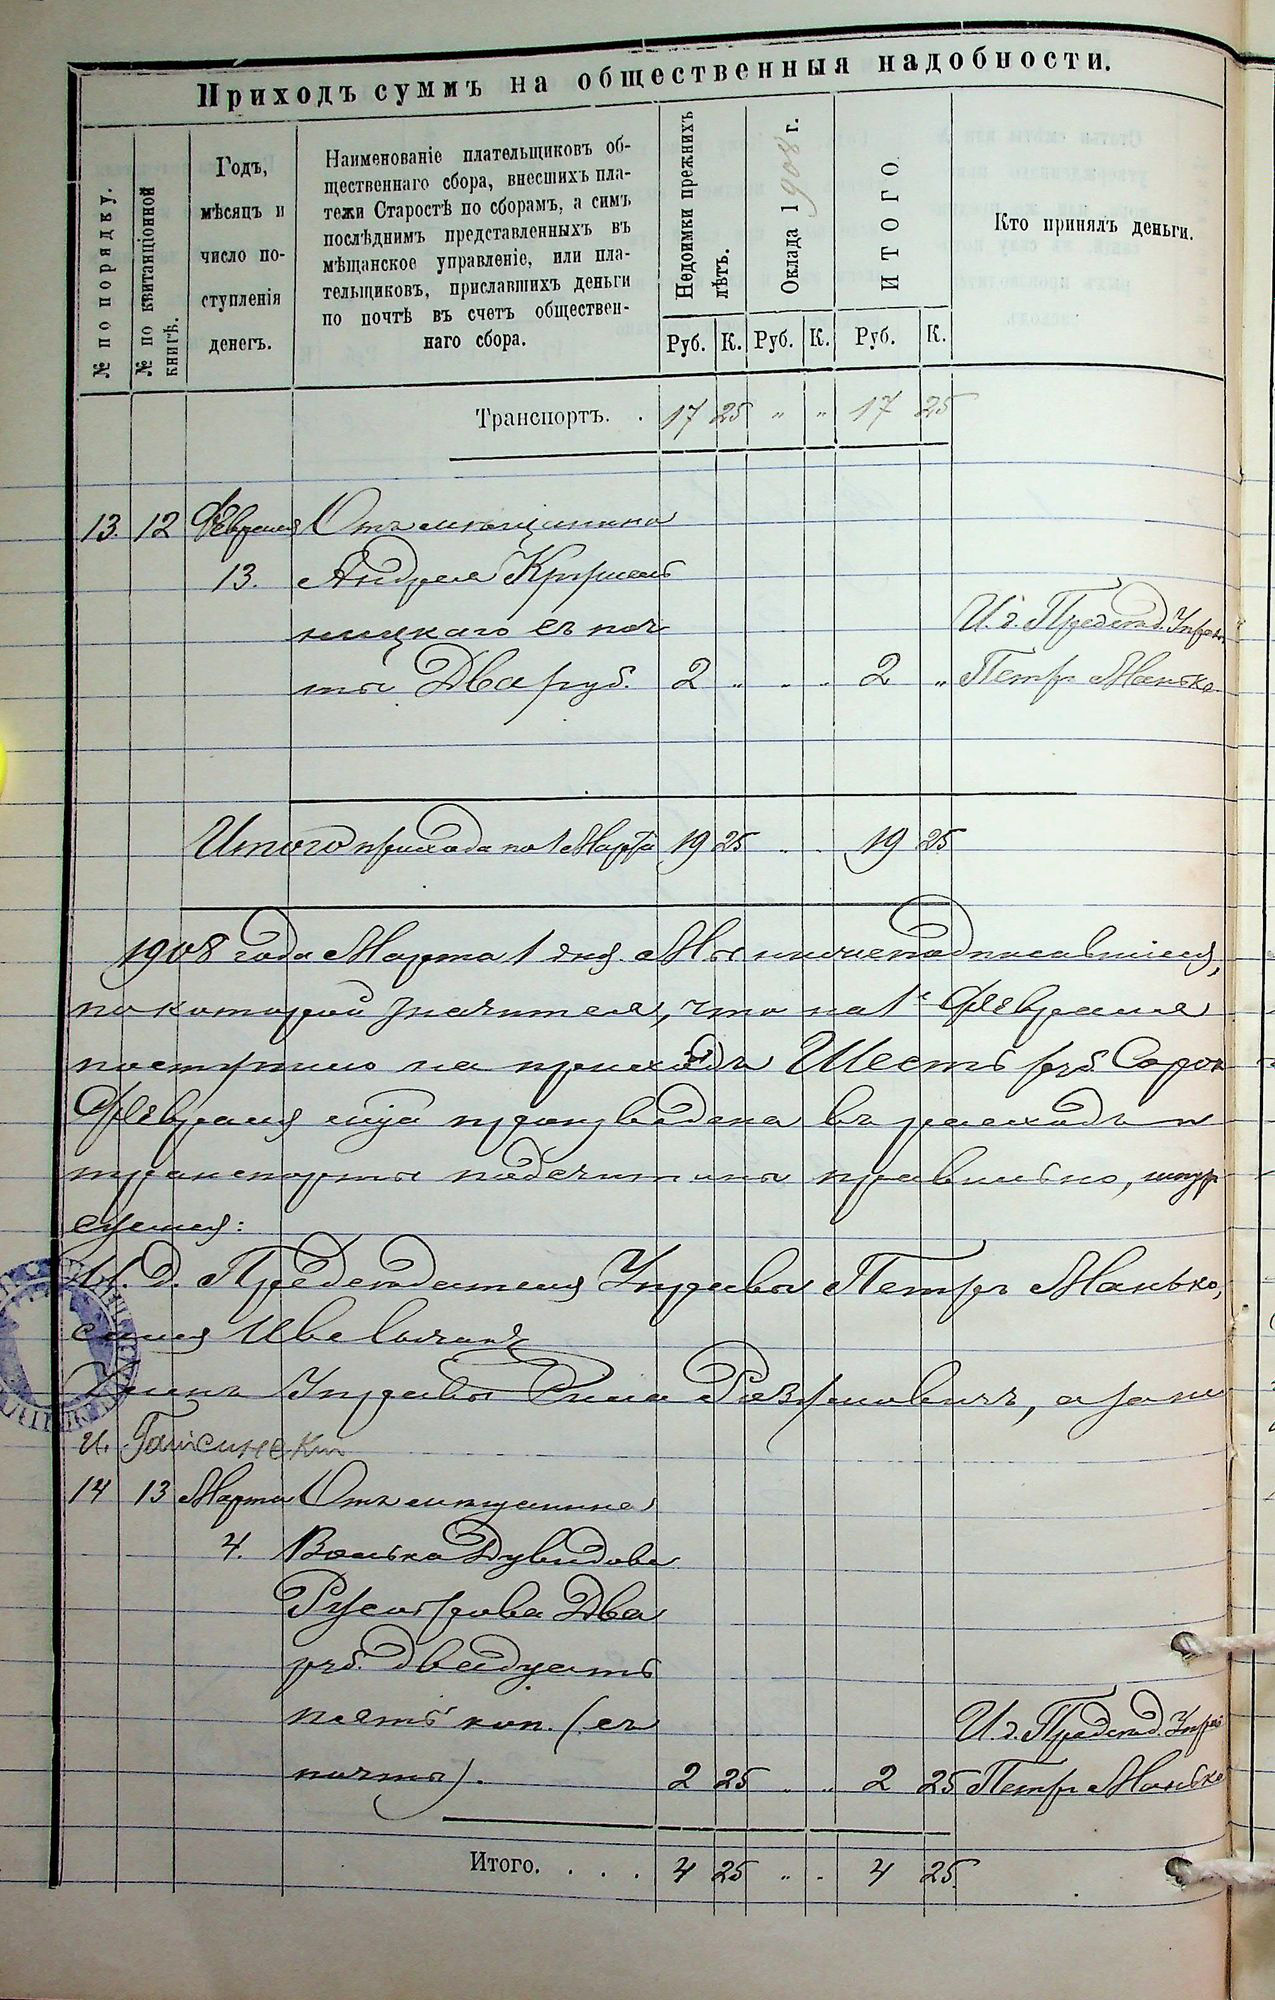 Приходъ суммъ на общественныя надобности.
№ по порядку.
№ по квитанціонной книгѣ.
Годъ,
мѣсяцъ и
число по-
ступленія
денегъ.
Наименованіе плательщиковъ об-
щественнаго сбора, внесшихъ пла-
тежи Старостѣ по сборамъ, а симъ
послѣднимъ представленныхъ въ
мѣщанское управленіе, или пла-
тельщиковъ, приславшихъ деньги
по почтѣ въ счетъ обществен-
наго сбора.
Недоимки прежнихъ лѣтъ.
Оклада 1908 г.
ИТОГО
Кто принялъ деньги.
Руб. К. Руб. К. Руб. К.
Транспортъ. . 17 25 " " 17 25
13. 12 Февраля Отъ мѣщанина
13. Андрея
ницкаго съ поч
ты Два руб. 2 " . . 2 "
И. д. Председ. Управы
Петръ Манько
Итого прихода по 1 Марта 19 25 . . 19 25
1908 года Марта 1 дня. Мы нижеподписавшіеся,
по которой значится, что на 1е Февраля
поступило на приходъ Шесть руб. Сорок
Февраля произведена въ расходъ и
транспорты подсчитаны правильно,
И. д. Председателя Управы Петръ Манько,
Членъ Управы, а за не
14 13 Марта Отъ мѣщанина
4. Два
руб. двадцать
пять коп. (съ
почты). 2 25 . .. 2 25
И. д. Председ. Управы
Петръ Манько
Итого. . . . 4 25 .. . 4 25.